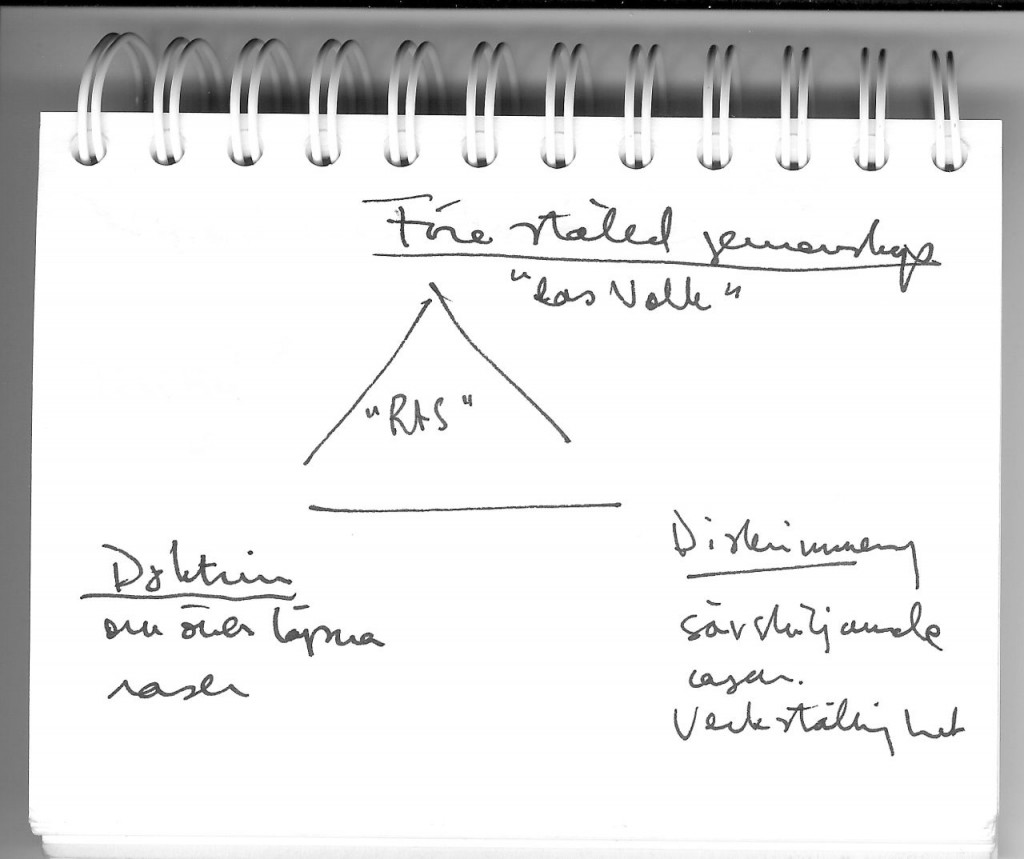 Föreställd gemenskap
"das Volk"
"RAS"
Doktrin
om överlägsna
raser
Diskriminering
särskiljande
lagar.
Verkställighet